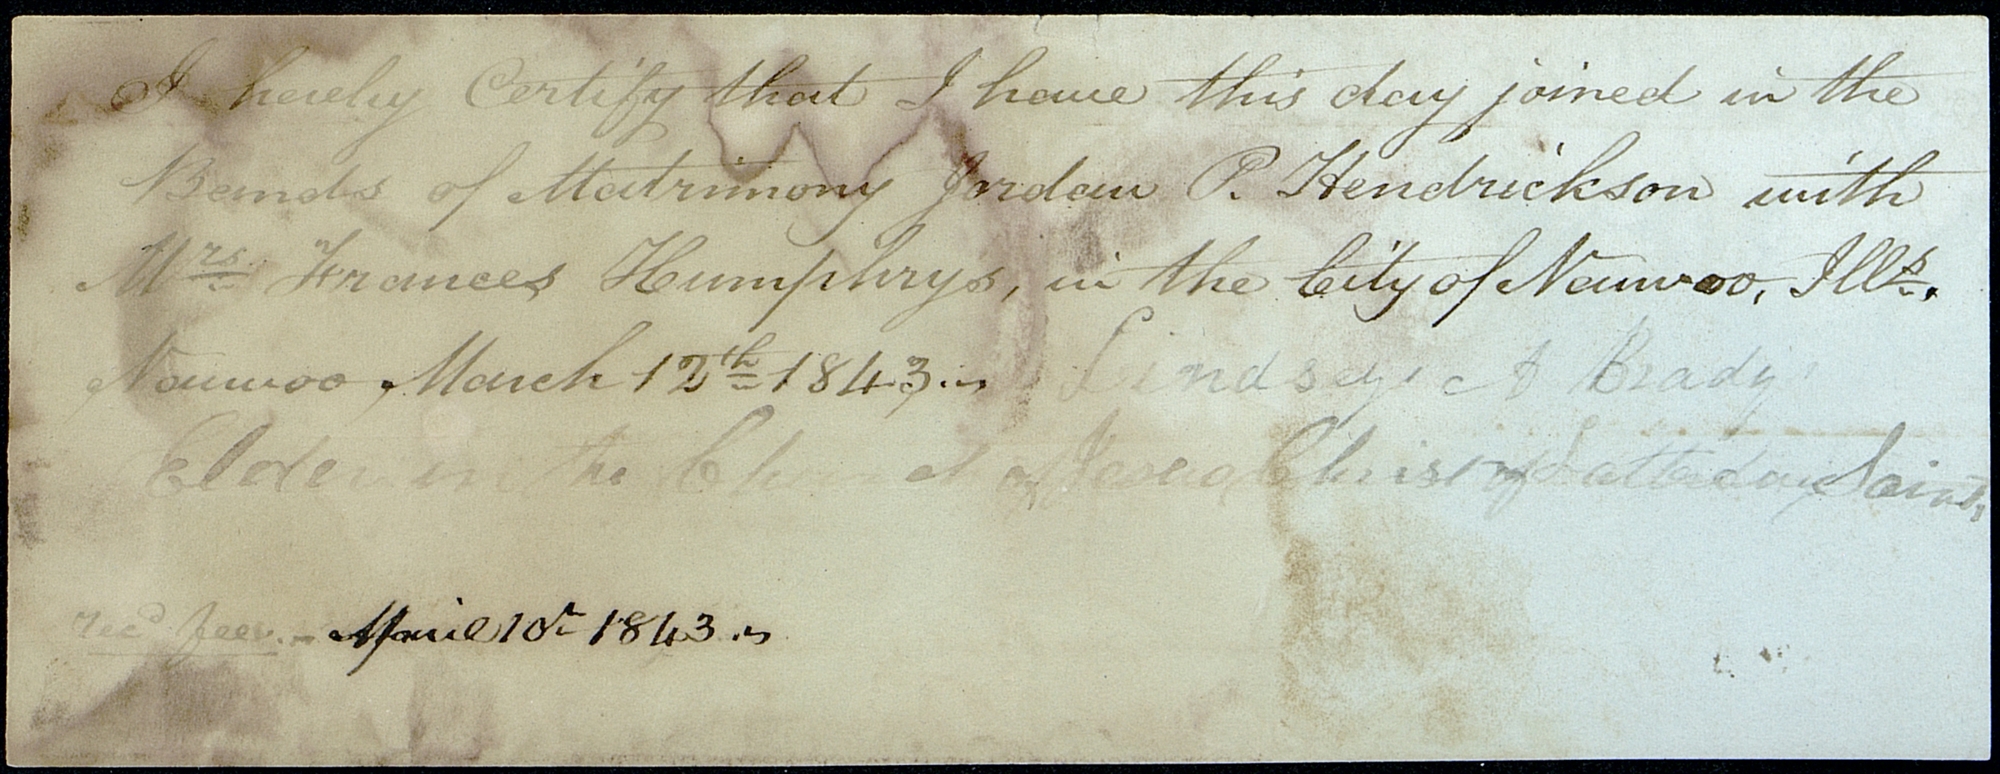 I hereby Certify that I have this day joined in the
Bands of Matrimony Jordan P. Hendrickson with
Mrs. Frances Humphrys, in the City of Nauvoo, Ills.
Nauvoo, March 12th 1843.~ Lindsay A Brady
Elder in the Church of Jesus Christ of Latterday Saints,
recd feer. - April 10th 1843.~